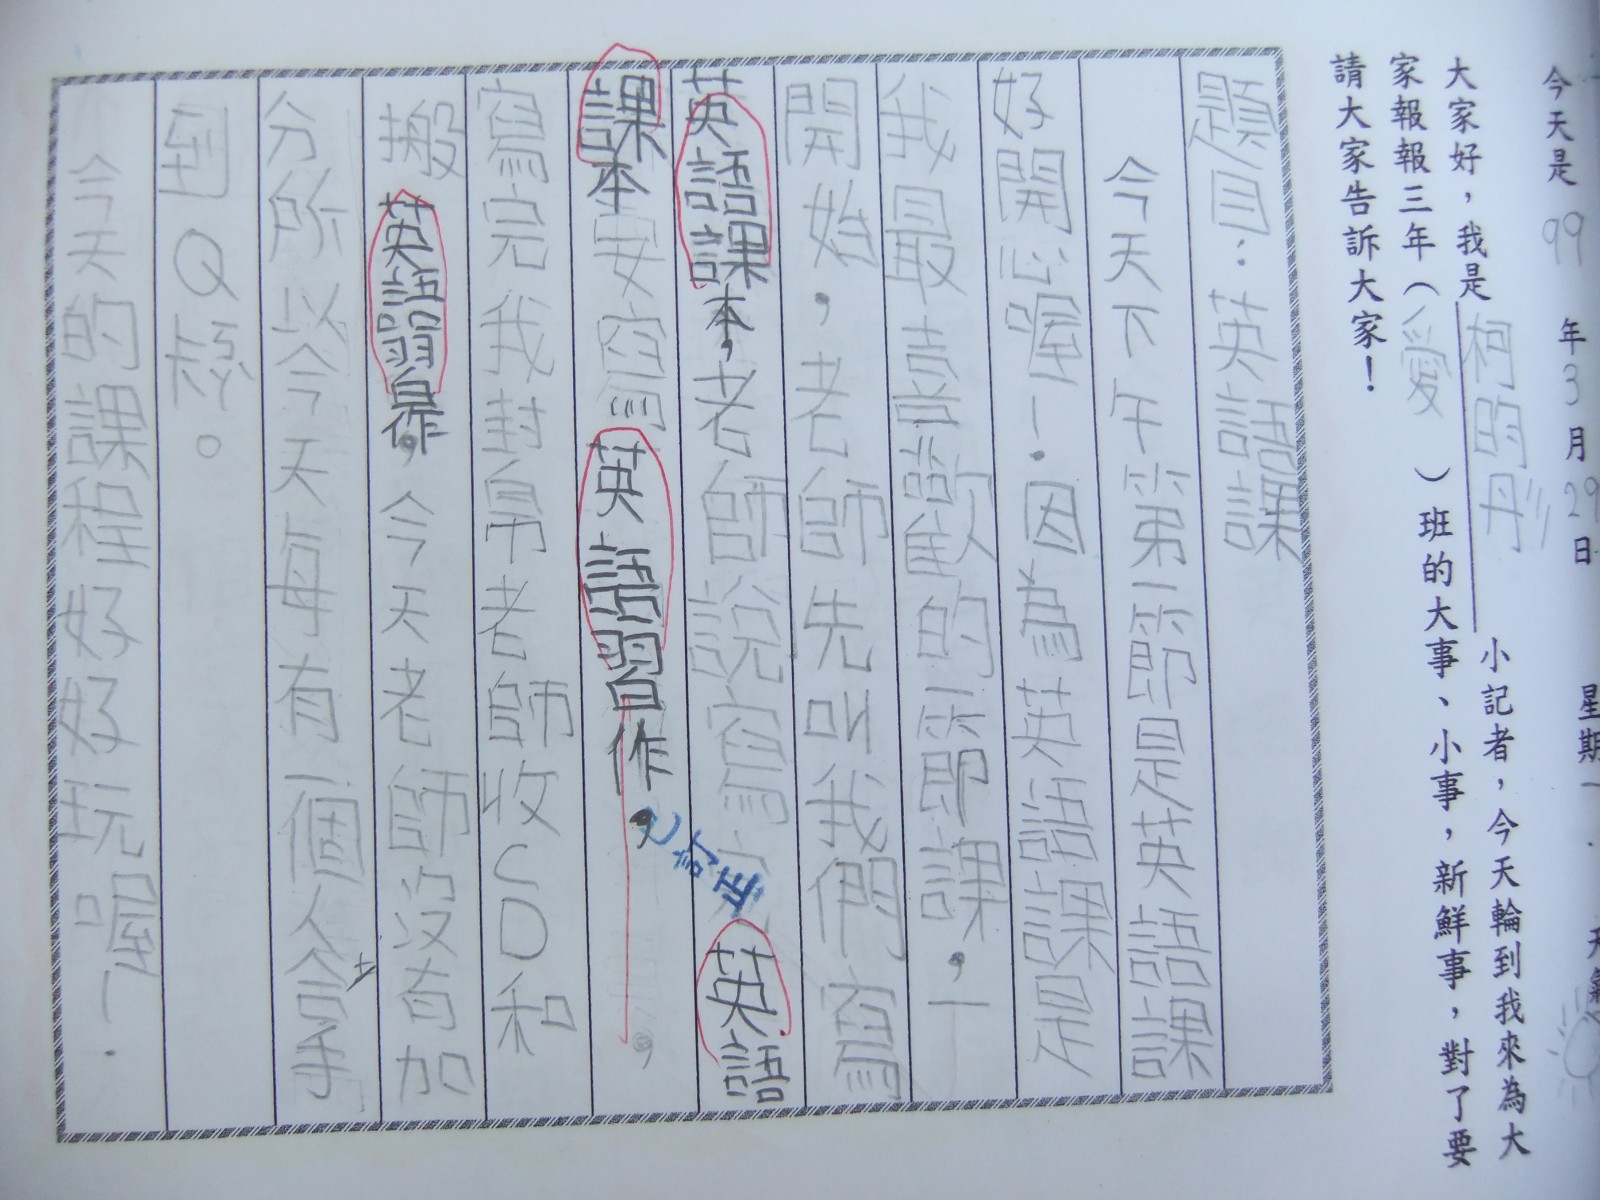 今天是99年3月29日 星期一.天氣
大家好，我是柯昀彤小記者，今天輪到我來為大
家報報三年（愛）班的大事、小事，新鮮事，對了要
請大家告訴大家！
題目：英語課
今天下午第一節是英語課
好開心喔！因為英語課是
我最喜歡的一節課，一
開始，老師先叫我們寫
英語課本，老師說寫完英語
課本要寫英語習作，
已訂正
寫完我封帛老師收CD和
搬英語習作。今天老師沒有加
分所以今天每有一個人拿手
到Q殼。
今天的課程好好玩喔！